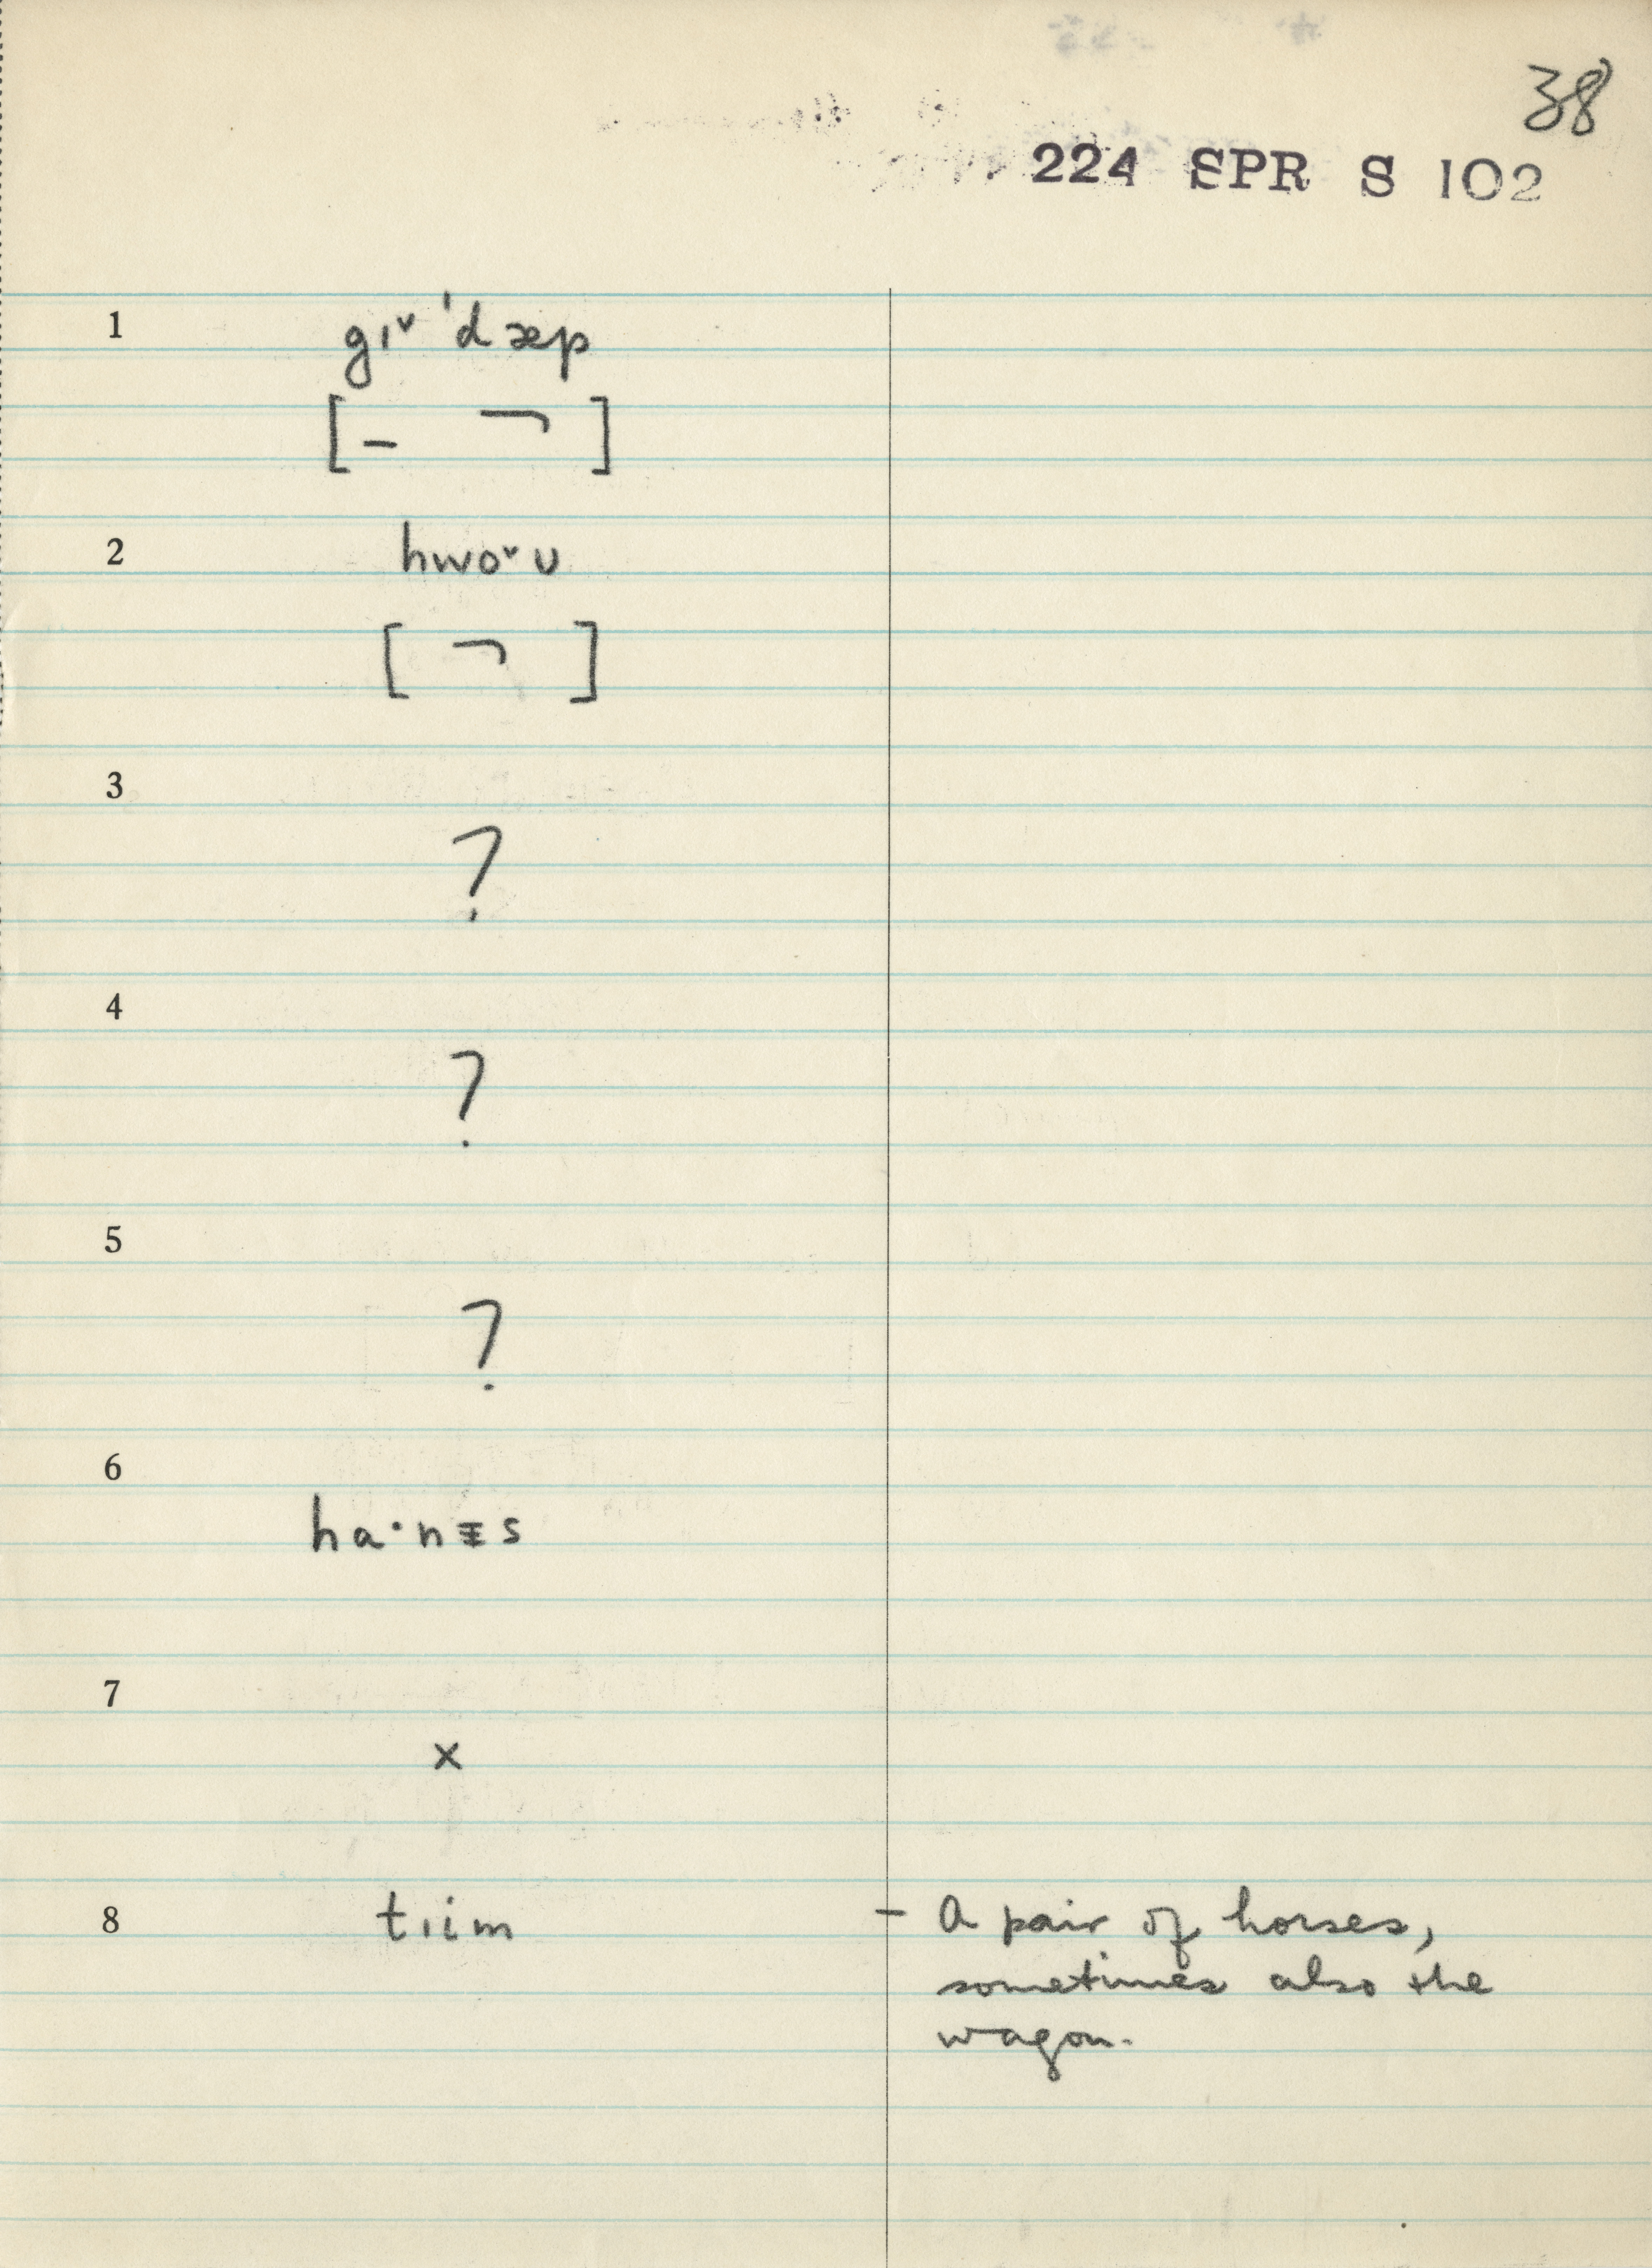 38
224 SPR S 102
1 gɪˇ ˈdæp
[– ¬ ]
2 hwoˇʊ
[ ¬ ]
3
?
4
?
5
?
6
ha·nɪ̵s
7
x
8 tɪim – A pair of horses,
sometimes also the
wagon.